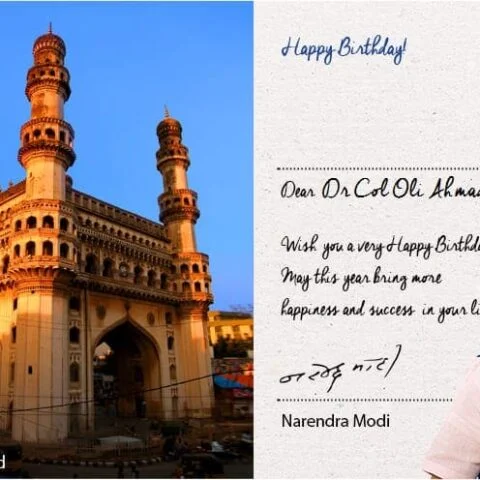 Happy Birthday!
Dear Dr Col Oli Ahmad
Wish you a very Happy Birthda
May this year bring more
happiness and success in your li
नरेन्द्र मोदी
Narendra Modi
d